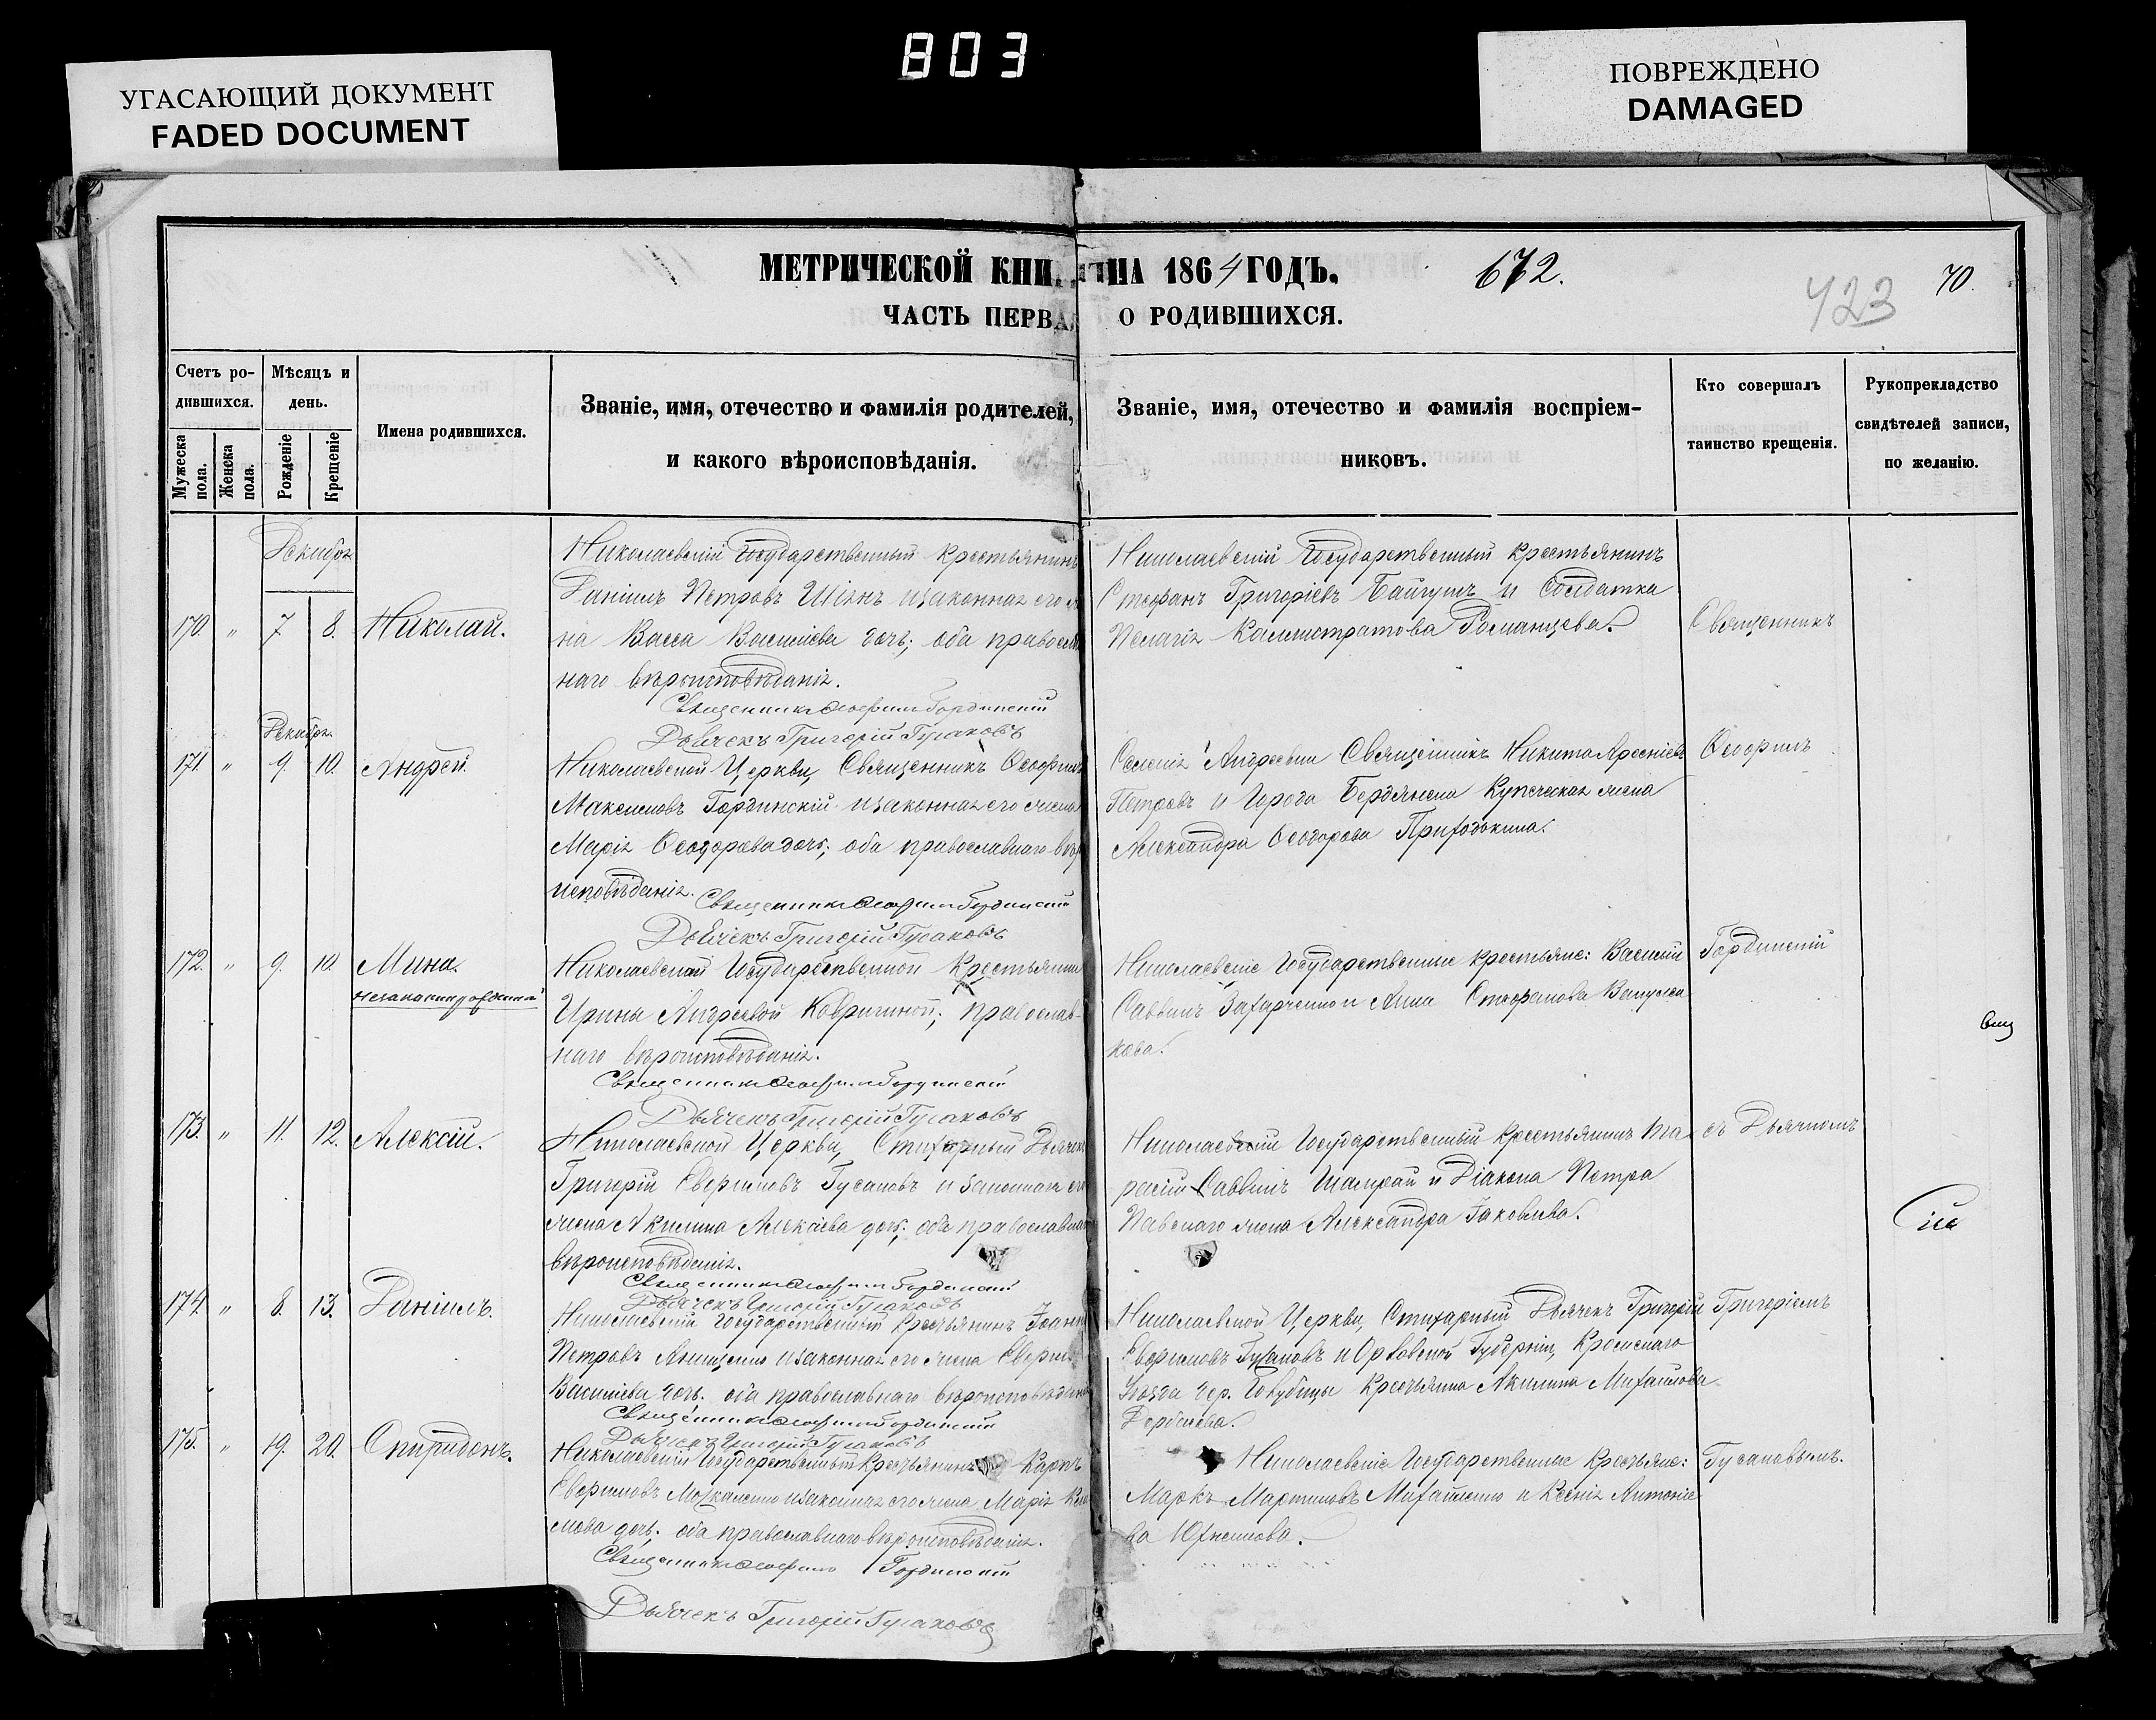 803
УГАСАЮЩИЙ ДОКУМЕНТ
FADED DOCUMENT
ПОВРЕЖДЕНО
DAMAGED
МЕТРИЧЕСКОЙ КНИ НА 1864 ГОДЪ.
672.
423
70.
ЧАСТЬ ПЕРВА О РОДИВШИХСЯ.
Счетъ родившихся.
Мужеска пола.
Женска пола.
Мѣсяцъ и день.
Рожденіе
Крещеніе
Имена родившихся.
Званіе, имя, отечество и фамилія родителей,
и какого вѣроисповѣданія.
Званіе, имя, отечество и фамилія воспріем-
никовъ.
Кто совершалъ
таинство крещенія.
Рукоприкладство
свидѣтелей записи,
по желанію.
Декабря
170. " 7 8. Николай.
Николаевскій Государственный крестьянинъ
Даніилъ Петровъ изаконная его
на Васса Василіева дочь; оба правосла
наго вѣроисповѣданія.
Священникъ Ѳеофилъ Гординскій
Дьячекъ Григорій Гусаковъ
Николаевскій Государственный крестьянинъ
Стефанъ Григоріевъ Байгушъ и Солдатка
Пелагія Каллистратова Романцева.
Священникъ
Декабря
171. " 9. 10. Андрей.
Николаевской Церкви, Священникъ Ѳеофилъ
Максимовъ Гординскій изаконная его жена
Марія Ѳеодорова дочь; оба православнаго вѣро
исповѣданія.
Священникъ Ѳеофилъ Гординскій
Дьячекъ Григорій Гусаковъ
Селенія Андреевки Священникъ Никита Арсеніевъ
Петровъ и Города Бердянска Купеческая жена
Александра Ѳеодорова Приходькина.
Ѳеофилъ
172. " 9. 10. Мина.
незаконнорожденный
Николаевской Государственной Крестьянки
Ирины Андреевой Ковригиной; православ-
наго вѣроисповѣданія.
Священникъ Ѳеофилъ Гординскій
Дьячекъ Григорій Гусаковъ
Николаевскіе Государственные крестьяне: Василій
Саввинъ Захарченко и Анна Стефанова
кова.
Гординскій
173. " 11. 12. Алексій.
Николаевской Церкви, Стихарный Дьячекъ
Григорій Гусаковъ и законная его
жена Акилина Алексіева дочь; оба православнаго
вѣроисповѣданія.
Священникъ Ѳеофилъ Гординскій
Дьячекъ Григорій Гусаковъ
Николаевскій Государственный крестьянинъ Та
расій Саввинъ Шамрай и Діакона Петра
жена Александра Іаковлева.
съ Дьячкомъ
174. " 8. 13. Даніилъ.
Николаевскій Государственный Крестьянинъ Іоаннъ
Петровъ изаконная его жена
Василіева дочь. оба православнаго вѣроисповѣданія
Священникъ Ѳеофилъ Гординскій
Дьячекъ Григорій Гусаковъ
Николаевской Церкви, Стихарный Дьячекъ Григорій
Гусаковъ и Орловской Губерніи, Кромскаго
Уѣзда дер. Крестьянка Акилина Михайлова
Григоріемъ
175. " 19. 20. Спиридонъ.
Николаевскій Государственный Крестьянинъ Карпъ
изаконная его жена Марія
дочь. оба православнаго вѣроисповѣданія.
Священникъ Ѳеофилъ Гординскій
Дьячекъ Григорій Гусаковъ
Николаевскіе Государственные Крестьяне:
Маркъ Мартиновъ Михайленко и Ксенія Антоніе
ва
Гусаковымъ.